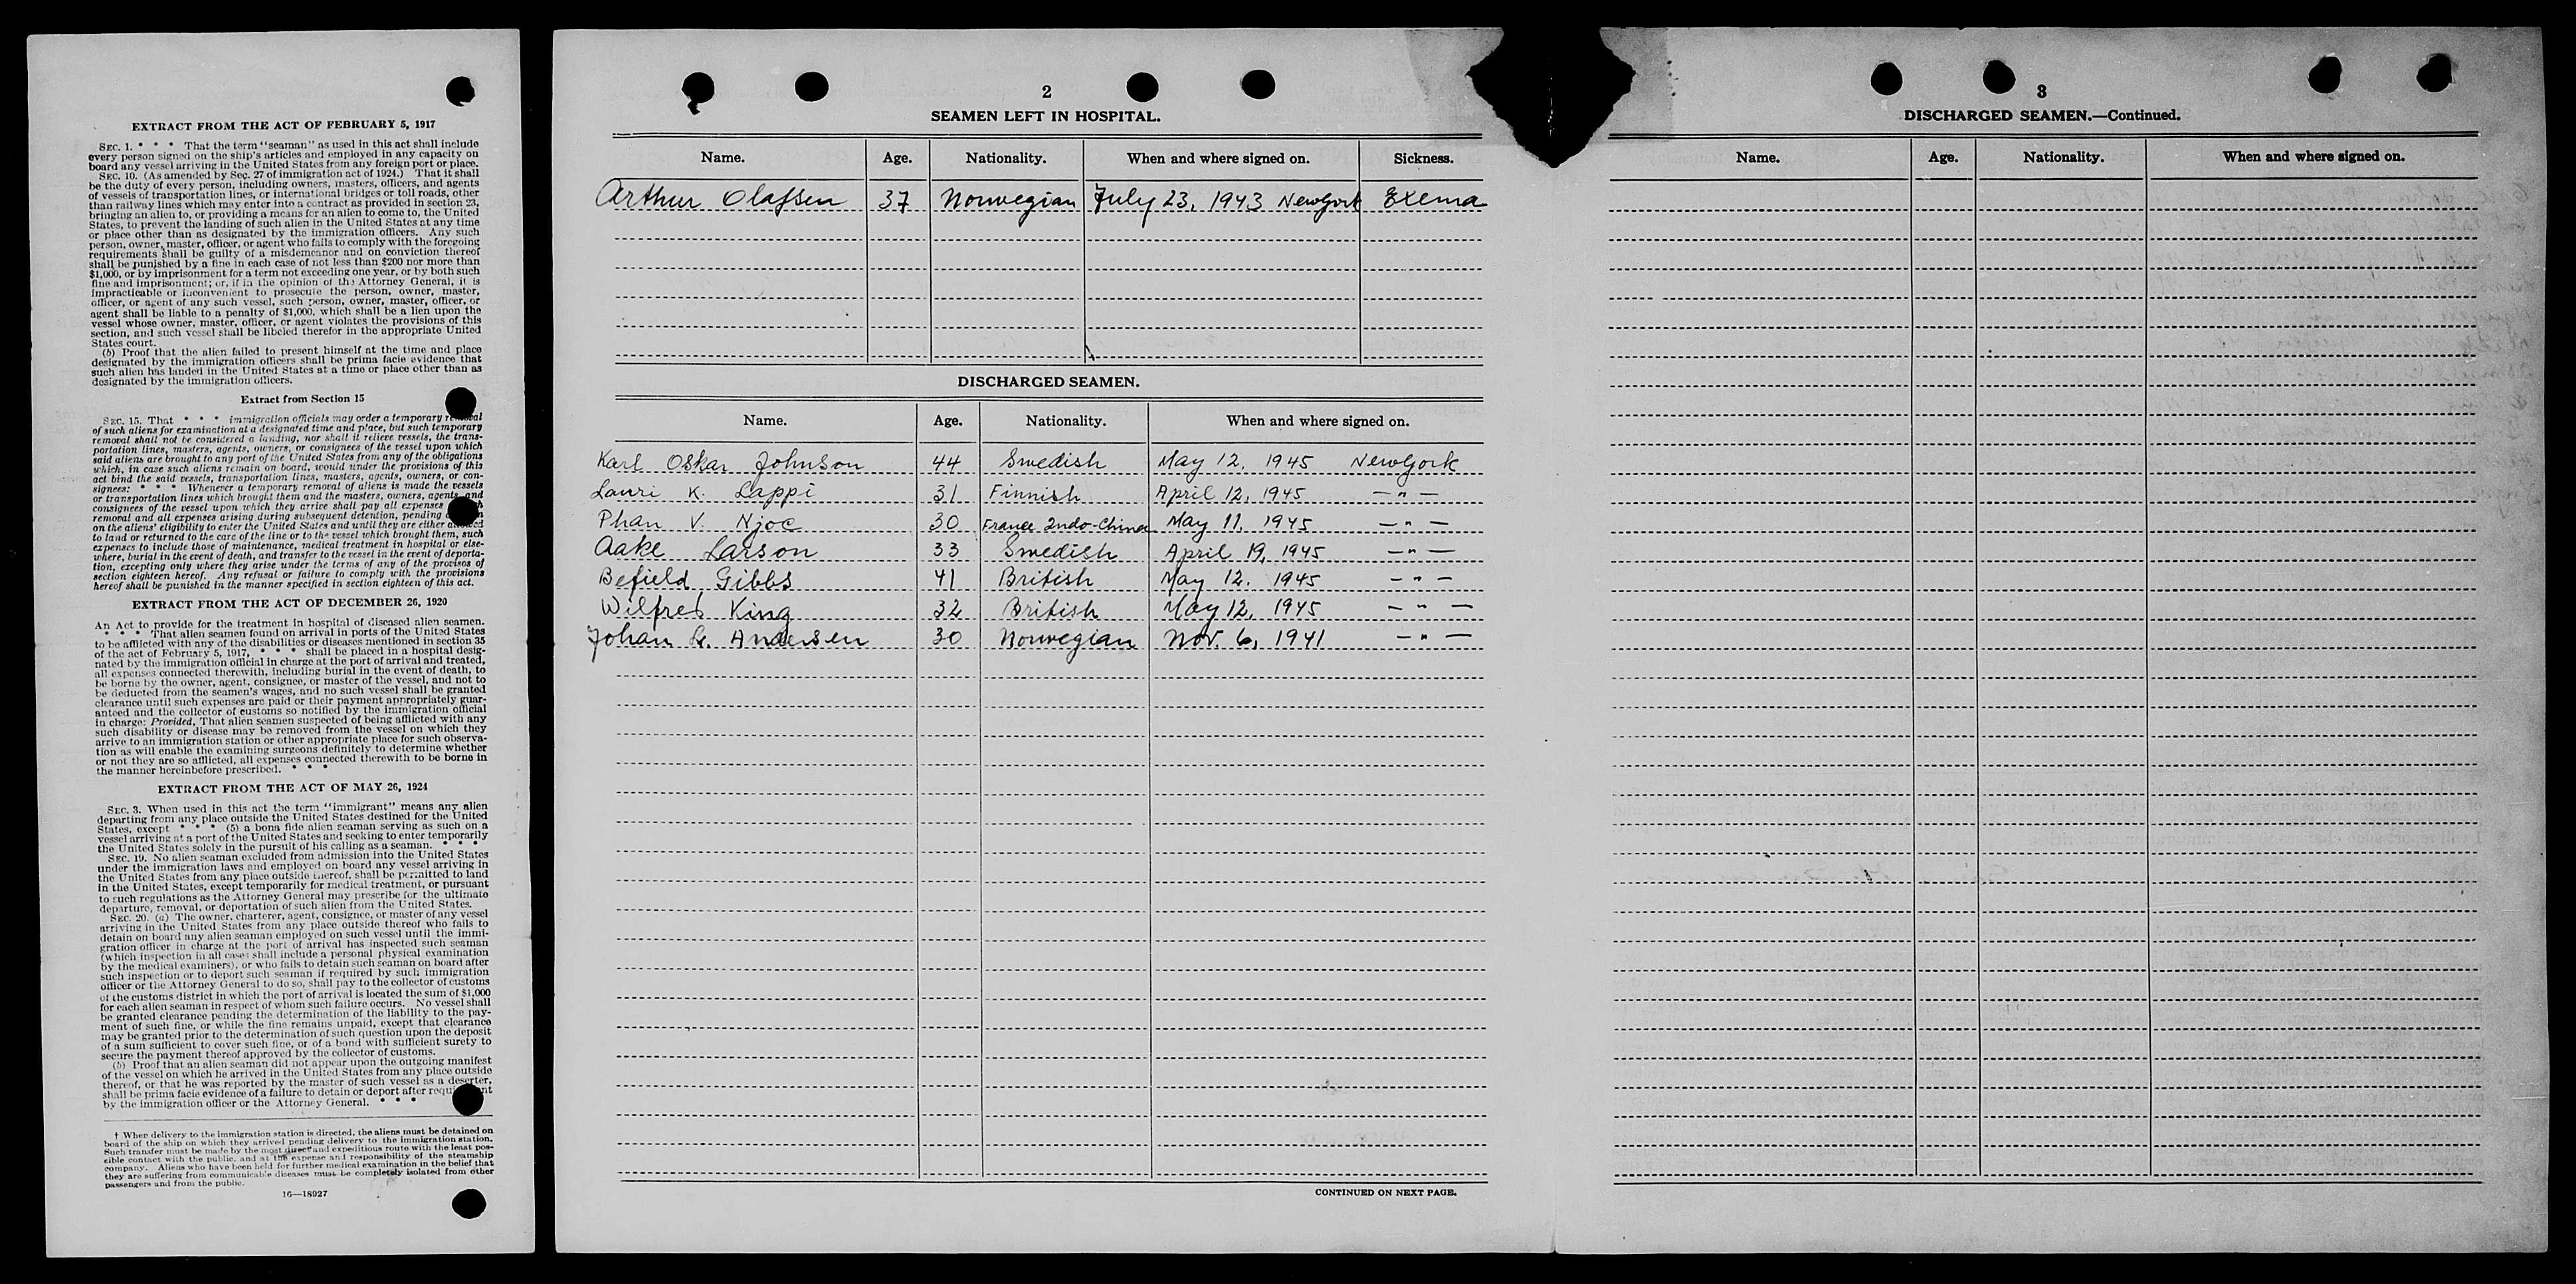 EXTRACT FROM THE ACT OF FEBRUARY 5, 1917
SEC. 1. * * * That the term "seaman" as used in this act shall include
every person signed on the ship's articles and employed in any capacity on
board any vessel arriving in the United States from any foreign port or place.
SEC. 10. (As amended by Sec. 27 of immigration act of 1924.) That it shall
be the duty of every person, including owners, masters, officers, and agents
of vessels of transportation lines, or international bridges or toll roads, other
than railway lines which may enter into a contract as provided in section 23,
bringing an alien to, or providing a means for an alien to come to, the United
States, to prevent the landing of such alien in the United States at any time
or place other than as designated by the immigration officers. Any such
person, owner, master, officer, or agent who fails to comply with the foregoing
requirements shall be guilty of a misdemeanor and on conviction thereof
shall be punished by a fine in each case of not less than $200 nor more than
$1,000, or by imprisonment for a term not exceeding one year, or by both such
fine and imprisonment; or, if in the opinion of the Attorney General, it is
impracticable or inconvenient to prosecute the person, owner, master,
officer, or agent of any such vessel, such person, owner, master, officer, or
agent shall be liable to a penalty of $1,000, which shall be a lien upon the
vessel whose owner, master, officer, or agent violates the provisions of this
section, and such vessel shall be libeled therefor in the appropriate United
States court.
(b) Proof that the alien failed to present himself at the time and place
designated by the immigration officers shall be prima facie evidence that
such alien has landed in the United States at a time or place other than as
designated by the immigration officers.
Extract from Section 15
SEC. 15. That * * * immigration officials may order a temporary removal
of such aliens for examination at a designated time and place, but such temporary
removal shall not be considered a landing, nor shall it relieve vessels, the trans-
portation lines, masters, agents, owners, or consignees of the vessel upon which
said aliens are brought to any port of the United States from any of the obligations
which, in case such aliens remain on board, would under the provisions of this
act bind the said vessels, transportation lines, masters, agents, owners, or con-
signees: * * * Whenever a temporary removal of aliens is made the vessels
or transportation lines which brought them and the masters, owners, agents, and
consignees of the vessel upon which they arrive shall pay all expenses
removal and all expenses arising during subsequent detention, pending
on the aliens' eligibility to enter the United States and until they are either allowed
to land or returned to the care of the line or to the vessel which brought them, such
expenses to include those of maintenance, medical treatment in hospital or else-
where, burial in the event of death, and transfer to the vessel in the event of deporta-
tion, excepting only where they arise under the terms of any of the provisos of
section eighteen hereof. Any refusal or failure to comply with the provisions
hereof shall be punished in the manner specified in section eighteen of this act.
EXTRACT FROM THE ACT OF DECEMBER 26, 1920
An Act to provide for the treatment in hospital of diseased alien seamen.
* * * That alien seamen found on arrival in ports of the United States
to be afflicted with any of the disabilities or diseases mentioned in section 35
of the act of February 5, 1917, * * * shall be placed in a hospital desig-
nated by the immigration official in charge at the port of arrival and treated,
all expenses connected therewith, including burial in the event of death, to
be borne by the owner, agent, consignee, or master of the vessel, and not to
be deducted from the seamen's wages, and no such vessel shall be granted
clearance until such expenses are paid or their payment appropriately guar-
anteed and the collector of customs so notified by the immigration official
in charge: Provided, That alien seamen suspected of being afflicted with any
such disability or disease may be removed from the vessel on which they
arrive to an immigration station or other appropriate place for such observa-
tion as will enable the examining surgeons definitely to determine whether
or not they are so afflicted, all expenses connected therewith to be borne in
the manner hereinbefore prescribed. * * *
EXTRACT FROM THE ACT OF MAY 26, 1924
SEC. 3. When used in this act the term "immigrant" means any alien
departing from any place outside the United States destined for the United
States, except * * * (5) a bona fide alien seaman serving as such on a
vessel arriving at a port of the United States and seeking to enter temporarily
the United States solely in the pursuit of his calling as a seaman. * * *
SEC. 19. No alien seaman excluded from admission into the United States
under the immigration laws and employed on board any vessel arriving in
the United States from any place outside thereof, shall be permitted to land
in the United States, except temporarily for medical treatment, or pursuant
to such regulations as the Attorney General may prescribe for the ultimate
departure, removal, or deportation of such alien from the United States.
SEC. 20. (a) The owner, charterer, agent, consignee, or master of any vessel
arriving in the United States from any place outside thereof who fails to
detain on board any alien seaman employed on such vessel until the immi-
gration officer in charge at the port of arrival has inspected such seaman
(which inspection in all cases shall include a personal physical examination
by the medical examiners), or who fails to detain such seaman on board after
such inspection or to deport such seaman if required by such immigration
officer or the Attorney General to do so, shall pay to the collector of customs
of the customs district in which the port of arrival is located the sum of $1,000
for each alien seaman in respect of whom such failure occurs. No vessel shall
be granted clearance pending the determination of the liability to the pay-
ment of such fine, or while the fine remains unpaid, except that clearance
may be granted prior to the determination of such question upon the deposit
of a sum sufficient to cover such fine, or of a bond with sufficient surety to
secure the payment thereof approved by the collector of customs.
(b) Proof that an alien seaman did not appear upon the outgoing manifest
of the vessel on which he arrived in the United States from any place outside
thereof, or that he was reported by the master of such vessel as a deserter,
shall be prima facie evidence of a failure to detain or deport after requirement
by the immigration officer or the Attorney General. * * *
† When delivery to the immigration station is directed, the aliens must be detained on
board of the ship on which they arrived pending delivery to the immigration station.
Such transfer must be made by the most direct and expeditious route with the least pos-
sible contact with the public, and at the expense and responsibility of the steamship
company. Aliens who have been held for further medical examination in the belief that
they are suffering from communicable diseases must be completely isolated from other
passengers and from the public.
16—18927
2
SEAMEN LEFT IN HOSPITAL.
Name. Age. Nationality. When and where signed on. Sickness.
Arthur Olafsen 37 Norwegian July 23, 1943 New York Exema
DISCHARGED SEAMEN.
Name. Age. Nationality. When and where signed on.
Karl Oskar Johnson 44 Swedish May 12, 1945 New York
Lauri K. Lappi 31 Finnish April 12, 1945 — " —
Phan V. Njoc 30 France Indo-China May 11, 1945 — " —
Aake Larson 33 Swedish April 19, 1945 — " —
Befield Gibbs 41 British May 12. 1945 — " —
Wilfred King 32 British May 12, 1945 — " —
Johan G. Andersen 30 Norwegian Nov. 6, 1941 — " —
CONTINUED ON NEXT PAGE.
3
DISCHARGED SEAMEN.—Continued.
Name. Age. Nationality. When and where signed on.